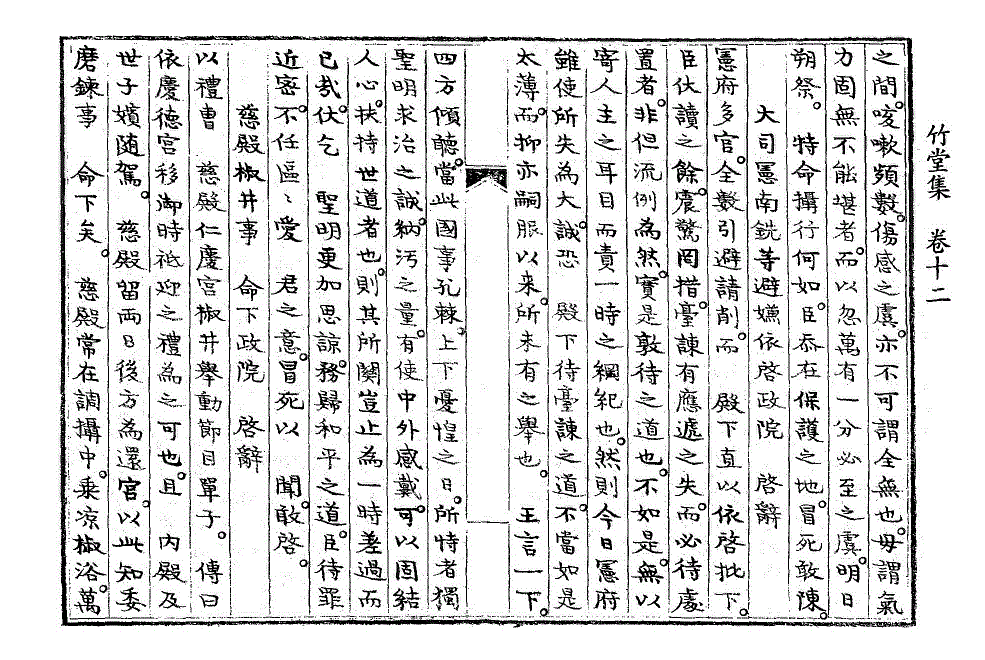 竹堂集　卷十二
之間。咳嗽頻數。傷感之虞。亦不可謂全無也。毋謂氣
力固無不能堪者。而以忽萬有一分必至之虞。明日
朔祭。　特命攝行何如。臣忝在保護之地。冒死敢陳。
大司憲南銑等避嫌依啓政院　啓辭
憲府多官。全數引避請削。而　殿下直以依啓批下。
臣伏讀之餘。震驚罔措。臺諫有應遞之失。而必待處
置者。非但流例為然。實是敦待之道也。不如是。無以
寄人主之耳目而責一時之綱紀也。然則今日憲府
雖使所失為大。誠恐　殿下待臺諫之道。不當如是
太薄。而抑亦嗣服以來。所未有之舉也。　王言一下。
四方傾聽。當此國事孔棘。上下憂惶之日。所恃者獨
聖明求治之誠。納污之量。有使中外感戴。可以固結
人心。扶持世道者也。則其所關豈止為一時差過而
已哉。伏乞　聖明更加思諒。務歸和平之道。臣待罪
近密。不任區區愛　君之意。冒死以　聞。敢啓。
慈殿椒井事　命下政院　啓辭
以禮曹　慈殿仁慶宮椒井舉動節目單子。　傳曰
依慶德宮移御時祗迎之禮為之可也。且　內殿及
世子嬪隨駕。　慈殿留兩日後方為還宮。以此知委
磨鍊事　命下矣。　慈殿常在調攝中。乘凉椒浴。萬